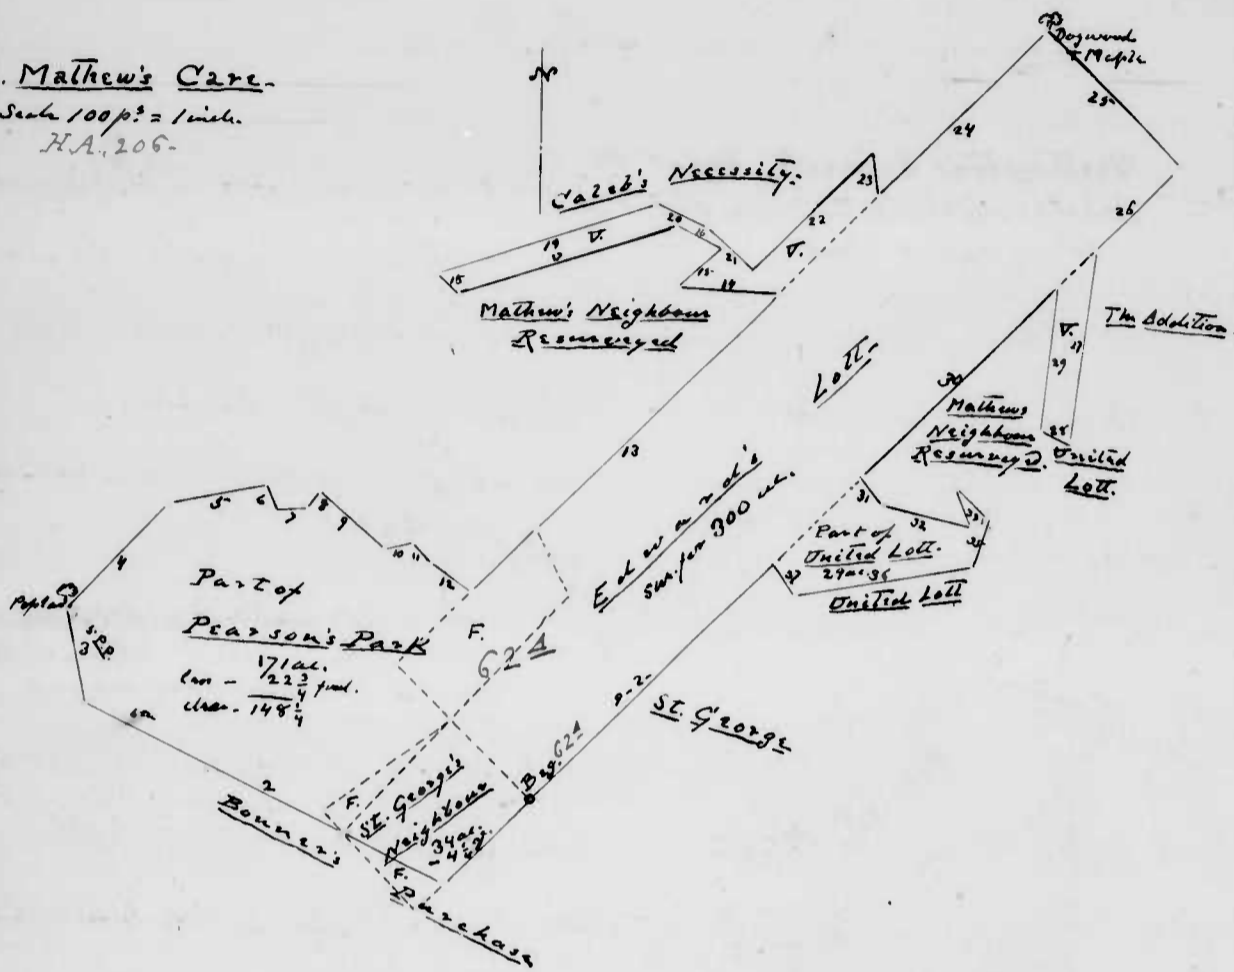 . Mathew's Care-
Scale 100 ps = 1 inch.
H.A. 206-
N
Dogwood
+ Maple
25
24
26
Caleb's Necessity-
23
22
V.
20
16
21
19
V.
15
14
18
Mathew's Neighbour
Resurveyed
The Addition
V.
27
29
28
30
Mathews
Neighbour
Resurveyd.
United
Lott.
Lott-
13
Edward's
sur. for 300 ac.
31
32
33
35
Part of
United Lott.
29 ac. 36
37
United Lott
5
6
7
8
9
10
11
12
4
Poplar
3
Part of
Pearson's Park
171 ac.
22 3/4 foul.
clear - 148 1/4
F.
62 A
2
Bonner's
F.
St. George's
Neighbour
34 ac.
- 4 1/4
F.
Purchase
B
62 A
St. George